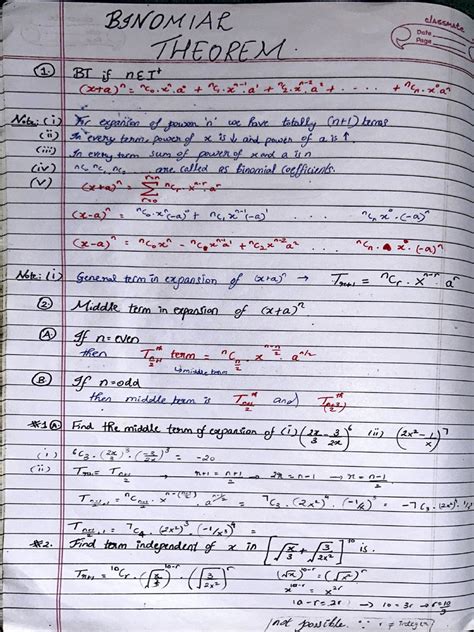 BINOMIAL
THEOREM.
classmate
Date
Page
① BT if n∈I⁺
(x+a)ⁿ = ⁿC₀·xⁿ·a⁰ + ⁿC₁·xⁿ⁻¹·a¹ + ⁿC₂·xⁿ⁻²·a² + .... + ⁿCₙ·x⁰·aⁿ
Note: (i) For expansion of power 'n' we have totally (n+1) terms
(ii) In every term, power of x is ↓ and power of a is ↑
(iii) In every term sum of power of x and a is n
(iv) ⁿC₀ ⁿC₁, ⁿC₂, are called as binomial coefficients.
(v) (x+a)ⁿ = Σ ⁿCᵣ·xⁿ⁻ʳ·aʳ
(x-a)ⁿ = ⁿC₀·xⁿ(-a)⁰ + ⁿC₁xⁿ⁻¹(-a)¹ ... ⁿCₙx⁰·(-a)ⁿ
(x-a)ⁿ = ⁿC₀xⁿ - xⁿ⁻¹a¹ + ⁿC₂xⁿ⁻²a² ... ⁿCₙ·x⁰·(-a)ⁿ
Note: (i) General term in expansion of (x+a)ⁿ → Tᵣ₊₁ = ⁿCᵣ·xⁿ⁻ʳ·aʳ
② Middle term in expansion of (x+a)ⁿ
Ⓐ If n=even
then term =
↳ middle term
Ⓑ If n=odd
then middle term is and
*1 Ⓐ Find the middle term of expansion of (i) (2x/3 - 3/2x)⁶ (ii) (2x² - 1/x)⁷
(i) ⁶C₃·(2x/3)³·(-3/2x)³ = -20
(ii)
= ⁷C₃·(2x²)⁴·(-1/x)³ =
= ⁷C₄·(2x²)³·(-1/x)⁴ =
*2. Find term independent of x in [√(x/3) + √(3/2x²)]¹⁰ is.
Tᵣ₊₁ = ¹⁰Cᵣ·(√(x/3))¹⁰⁻ʳ·(√(3/2x²))ʳ
10-r=2r → 10=3r → r=10/3
not possible ∵ r ≠ Integer